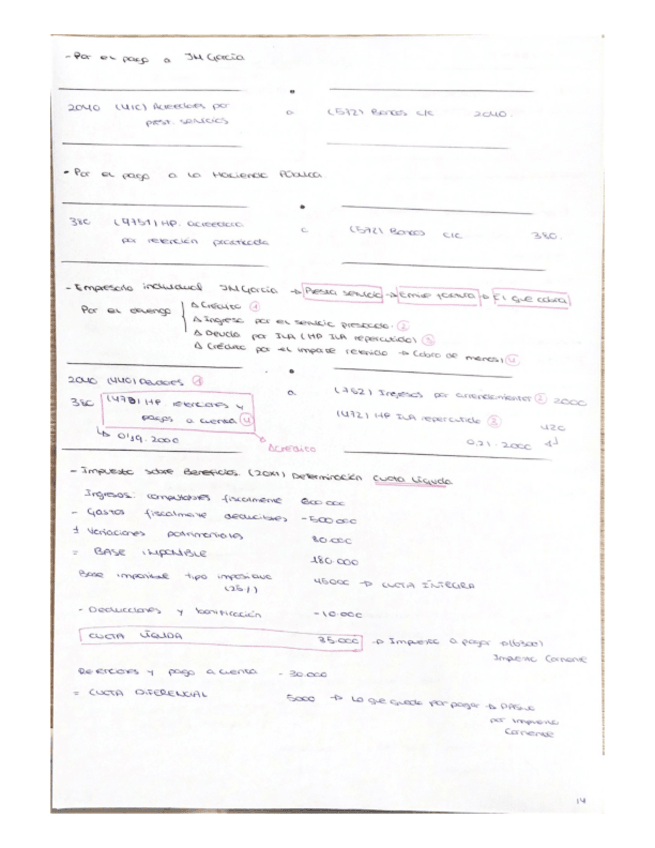 - Por el pago a JM Garcia
2040 (410) Acreedores por prest. servicios a (572) Bancos c/c 2040.
- Por el pago a la Hacienda Pública
380 (4751) HP. acreedora por retención practicada a (572) Bancos c/c 380.
- Empresario individual JM Garcia → Presta servicio → Emite factura → El que cobra
Por el devengo
Δ Crédito ①
Δ Ingreso por el servicio prestado ②
Δ Deuda por IVA (HP IVA repercutido) ③
Δ Crédito por el impte retenido → Cobro de menos ④
2040 (440) Deudores ① a (752) Ingresos por arrendamientos ② 2000
380 (473) HP retenciones y pagos a cuenta ④ (472) HP IVA repercutido ③ 420
↳ 0'19. 2000 0,21. 2000
Δ Crédito
- Impuesto sobre Beneficios (20X1) Determinación Cuota líquida
Ingresos computables fiscalmente 600 000
- Gastos fiscalmente deducibles -500 000
± Variaciones patrimoniales 80 000
= BASE IMPONIBLE 180 000
Base imponible tipo impositivo (25%) 45000 → CUOTA ÍNTEGRA
- Deducciones y bonificación -10.000
CUOTA LÍQUIDA 35.000 → Impuesto a pagar →(6300) Impuesto Corriente
Retenciones y pago a cuenta - 30.000
= CUOTA DIFERENCIAL 5000 → Lo que queda por pagar → Pasivo por impuesto Corriente
14